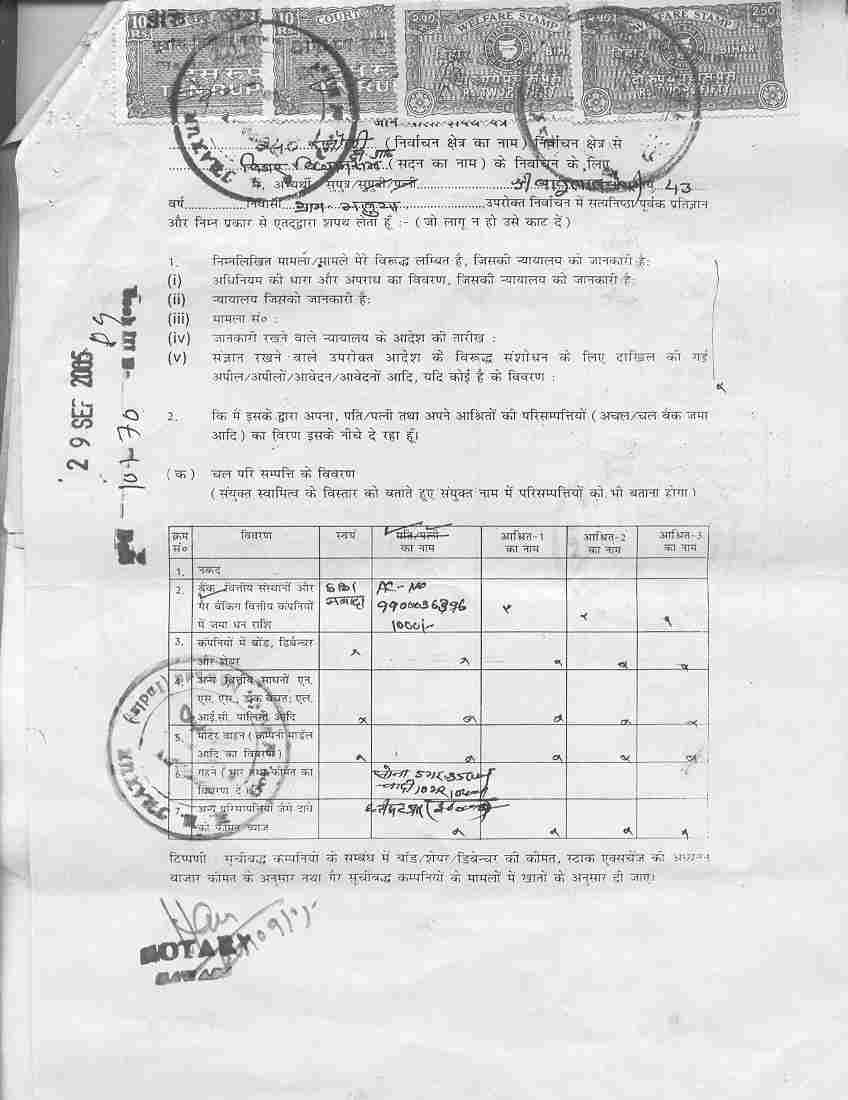 10 RS. COURT 10 RS. COURT 2.50 WELFARE STAMP 2.50 WELFARE STAMP 2.50
बिहार BIHAR बिहार BIHAR
दस रूपये
240 (निर्वाचन क्षेत्र का नाम) निर्वाचन क्षेत्र से
बिहार विधान सभा (सदन का नाम) के निर्वाचन के लिए
मैं, अभ्यर्थी सुपुत्र/सुपुत्री/पत्नी श्री 43
वर्ष निवासी ग्राम उपरोक्त निर्वाचन में सत्यनिष्ठा/पूर्वक प्रतिज्ञान
और निम्न प्रकार से एतद्द्वारा शपथ लेता हूँ :- ( जो लागू न हो उसे काट दें )
1. निम्नलिखित मामला/मामले मेरे विरूद्ध लम्बित है, जिसकी न्यायालय को जानकारी है:
(i) अधिनियम की धारा और अपराध का विवरण, जिसकी न्यायालय को जानकारी है:
(ii) न्यायालय जिसको जानकारी है:
(iii) मामला सं० :
(iv) जानकारी रखने वाले न्यायालय के आदेश की तारीख :
(v) संज्ञान रखने वाले उपरोक्त आदेश के विरूद्ध संशोधन के लिए दाखिल की गई
अपील/अपीलों/आवेदन/आवेदनों आदि, यदि कोई है के विवरण :
29 SEP 2005
2. कि मैं इसके द्वारा अपना, पति/पत्नी तथा अपने आश्रितों की परिसम्पत्तियों ( अचल/चल बैंक जमा
आदि ) का विरण इसके नीचे दे रहा हूँ।
(क) चल परि सम्पत्ति के विवरण
( संयुक्त स्वामित्व के विस्तार को बताते हुए संयुक्त नाम में परिसम्पत्तियों को भी बताना होगा )
क्रम सं० विवरण स्वयं पति/पत्नी का नाम आश्रित-1 का नाम आश्रित-2 का नाम आश्रित-3 का नाम
1. नकद
2. बैंक, वित्तीय संस्थानों और SBI AC- No
गैर बैंकिंग वित्तीय कंपनियों नवादा
में जमा धन राशि 1000/-
3. कंपनियों में बांड, डिबेन्चर
और शेयर
4. अन्य वित्तीय साधनों एन.
एस. एस., डाक बचत, एल.
आई.सी. पालिसी आदि
5. मोटर वाहन ( कम्पनी माडल
आदि का विवरण )
6. गहने ( भार तथा कीमत का
विवरण दें )
7. अन्य परिसम्पत्तियां जैसे दावे
की कीमत ब्याज
टिप्पणी सूचीबद्ध कम्पनियों के सम्बंध में बांड/शेयर/डिबेन्चर की कीमत, स्टाक एक्सचेंज को अध्यतन
बाजार कीमत के अनुसार तथा गैर सूचीबद्ध कम्पनियों के मामलों में खातों के अनुसार दी जाए।
NOTARY